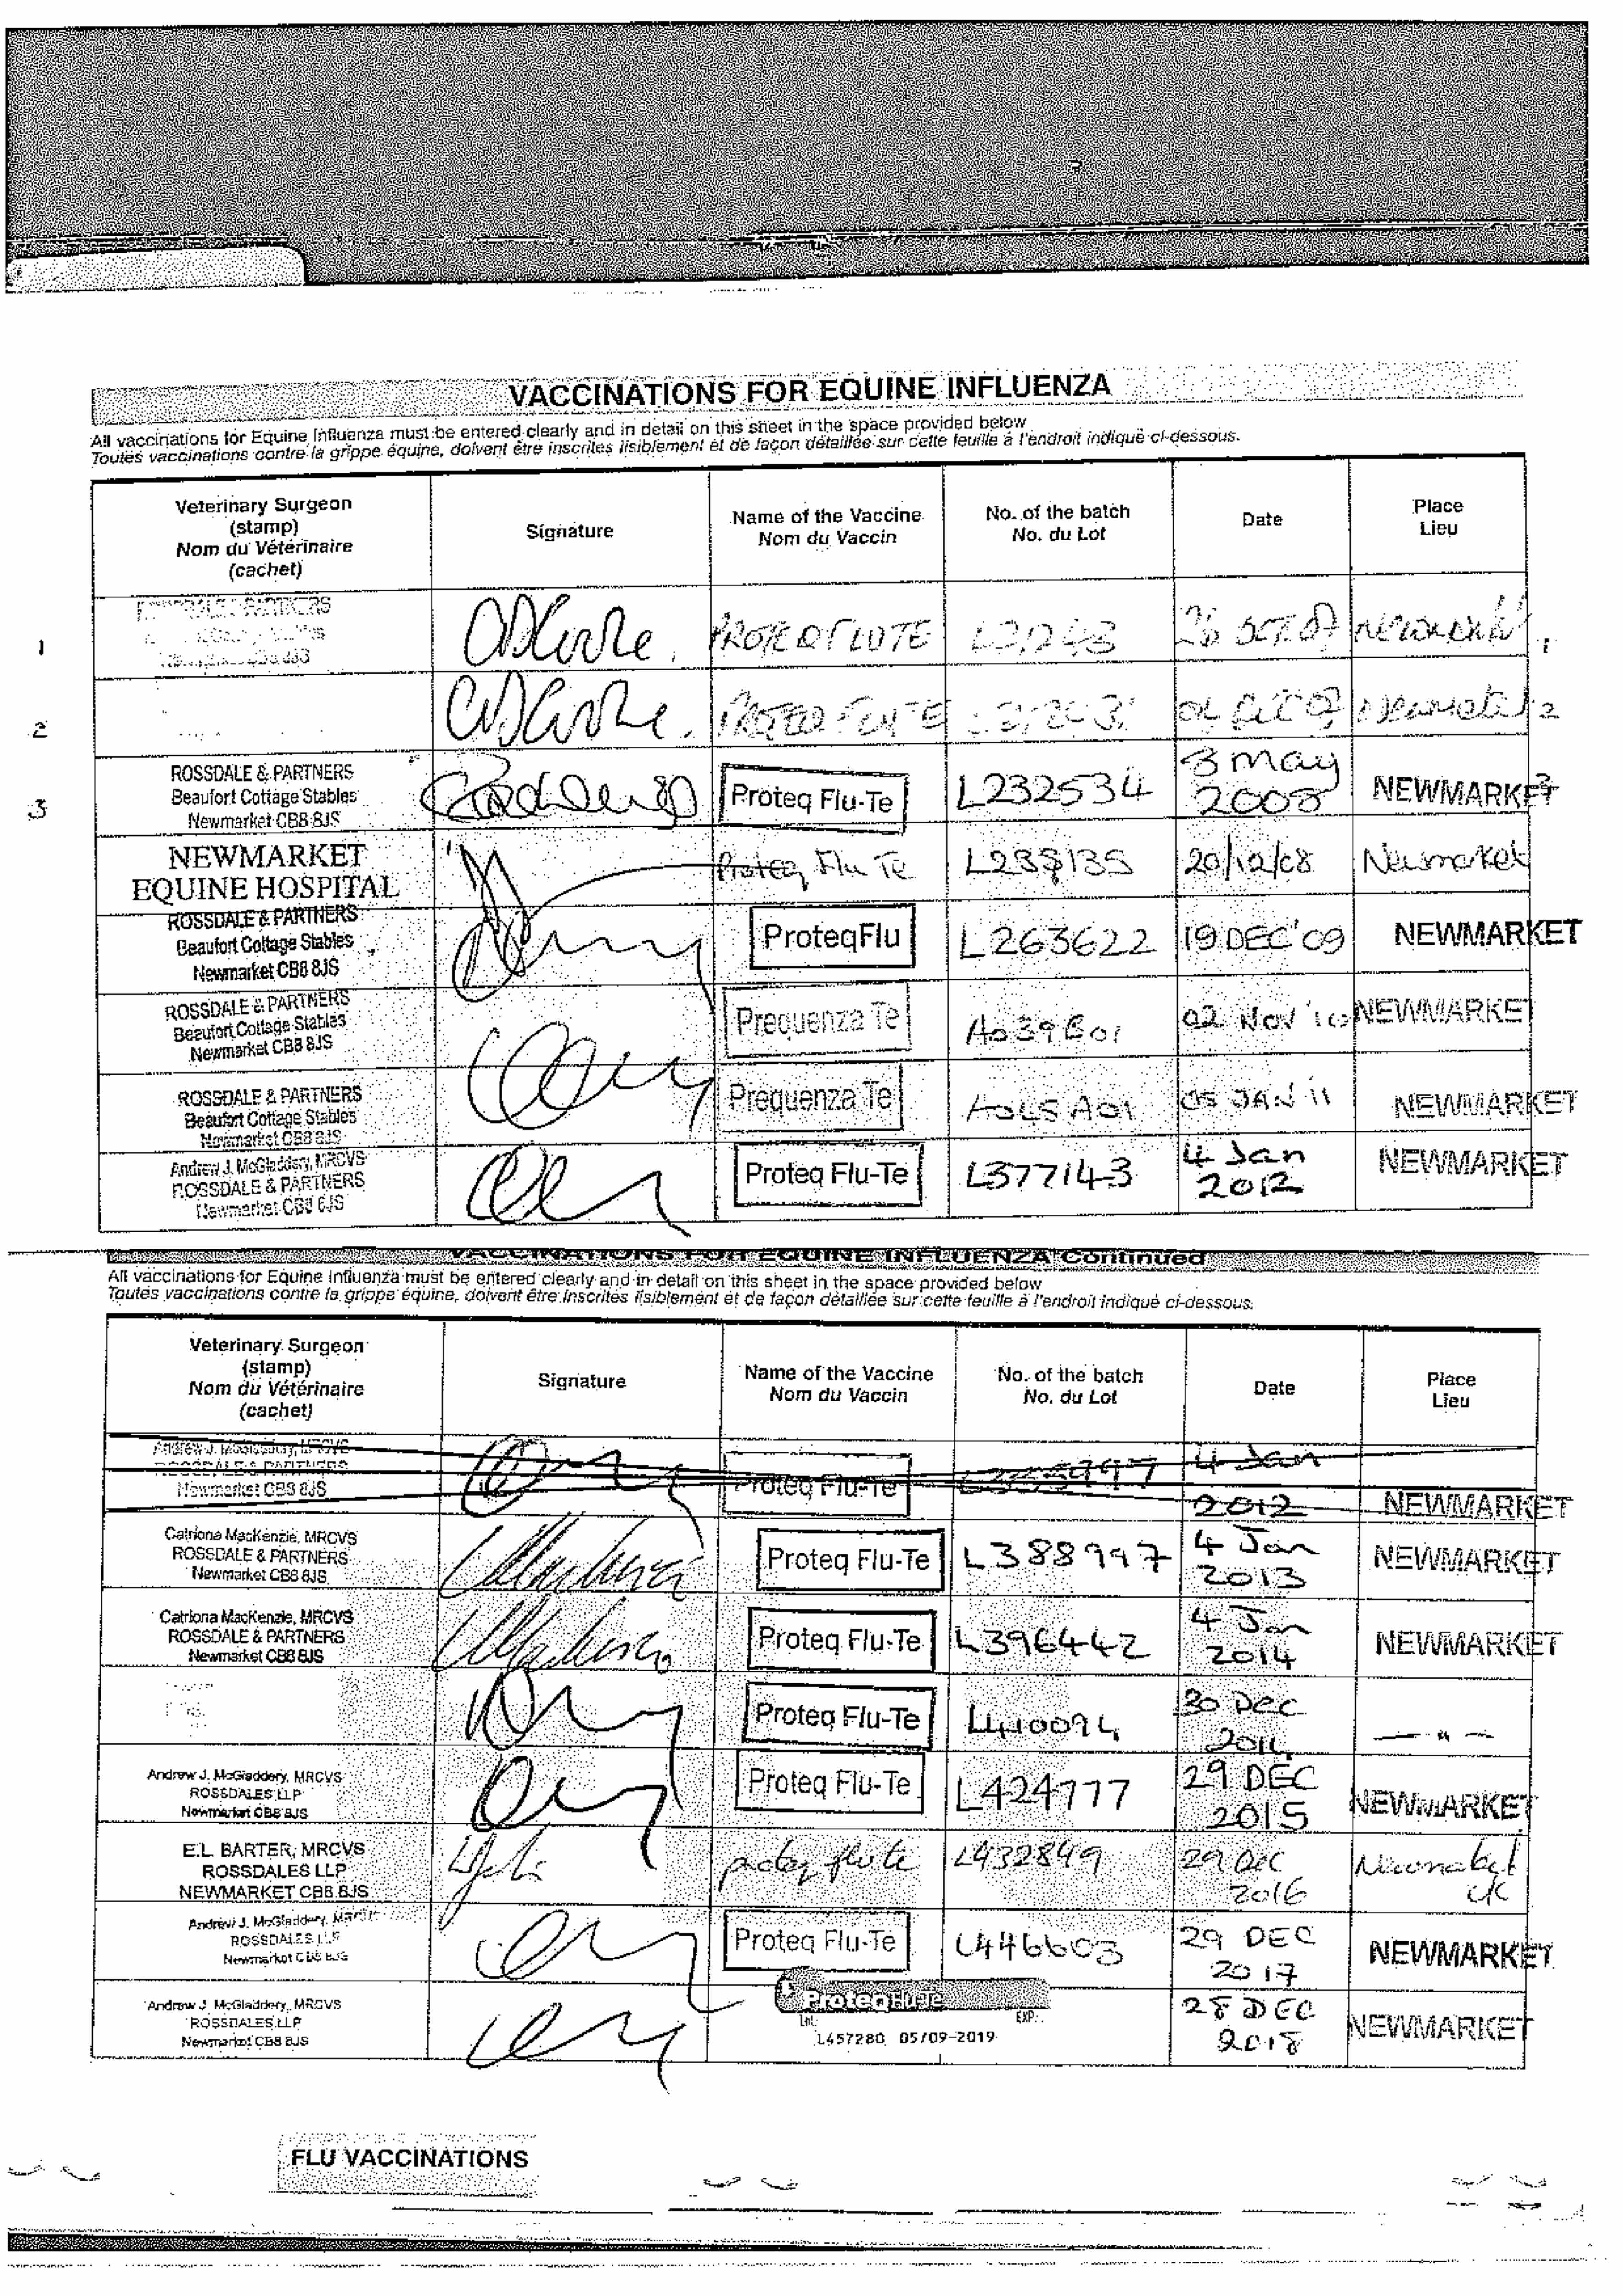 VACCINATIONS FOR EQUINE INFLUENZA
All vaccinations for Equine Influenza must be entered clearly and in detail on this sheet in the space provided below
Toutes vaccinations contre la grippe équine, doivent être inscrites lisiblement et de façon détaillée sur cette feuille à l'endroit indiqué ci-dessous.
Veterinary Surgeon (stamp) Nom du Vétérinaire (cachet)
Signature
Name of the Vaccine Nom du Vaccin
No. of the batch No. du Lot
Date
Place Lieu
1 PARTNERS PROTEQ FLUTE OCT 07 NEWMARKET 1
2 PROTEQ FLUTE Newmarket 2
3 ROSSDALE & PARTNERS Beaufort Cottage Stables Newmarket CB8 8JS Proteq Flu-Te L232534 3 May 2008 NEWMARKET 3
NEWMARKET EQUINE HOSPITAL Proteq Flu Te 20/12/08 Newmarket
ROSSDALE & PARTNERS Beaufort Cottage Stables Newmarket CB8 8JS ProteqFlu L263622 19 DEC '09 NEWMARKET
ROSSDALE & PARTNERS Beaufort Cottage Stables Newmarket CB8 8JS Prequenza Te A039B01 02 Nov '10 NEWMARKET
ROSSDALE & PARTNERS Beaufort Cottage Stables Newmarket CB8 8JS Prequenza Te A045A01 05 JAN 11 NEWMARKET
Andrew J. McGladdery, MRCVS ROSSDALE & PARTNERS Newmarket CB8 8JS Proteq Flu-Te L377143 4 Jan 2012 NEWMARKET
VACCINATIONS FOR EQUINE INFLUENZA Continued
All vaccinations for Equine Influenza must be entered clearly and in detail on this sheet in the space provided below
Toutes vaccinations contre la grippe équine, doivent être inscrites lisiblement et de façon détaillée sur cette feuille à l'endroit indiqué ci-dessous.
Veterinary Surgeon (stamp) Nom du Vétérinaire (cachet)
Signature
Name of the Vaccine Nom du Vaccin
No. of the batch No. du Lot
Date
Place Lieu
Andrew J. McGladdery, MRCVS ROSSDALE & PARTNERS Newmarket CB8 8JS Proteq Flu-Te 4 Jan 2012 NEWMARKET
Catriona MacKenzie, MRCVS ROSSDALE & PARTNERS Newmarket CB8 8JS Proteq Flu-Te L388997 4 Jan 2013 NEWMARKET
Catriona MacKenzie, MRCVS ROSSDALE & PARTNERS Newmarket CB8 8JS Proteq Flu-Te L396442 4 Jan 2014 NEWMARKET
Proteq Flu-Te L410094 30 Dec 2014 — " —
Andrew J. McGladdery, MRCVS ROSSDALES LLP Newmarket CB8 8JS Proteq Flu-Te L424777 29 DEC 2015 NEWMARKET
E.L. BARTER, MRCVS ROSSDALES LLP NEWMARKET CB8 8JS proteq flu te L432849 29 Dec 2016 Newmarket UK
Andrew J. McGladdery, MRCVS ROSSDALES LLP Newmarket CB8 8JS Proteq Flu-Te L446603 29 DEC 2017 NEWMARKET
Andrew J. McGladdery, MRCVS ROSSDALES LLP Newmarket CB8 8JS ProteqFlu-Te Lot: EXP: L457280 05/09-2019 28 DEC 2018 NEWMARKET
FLU VACCINATIONS